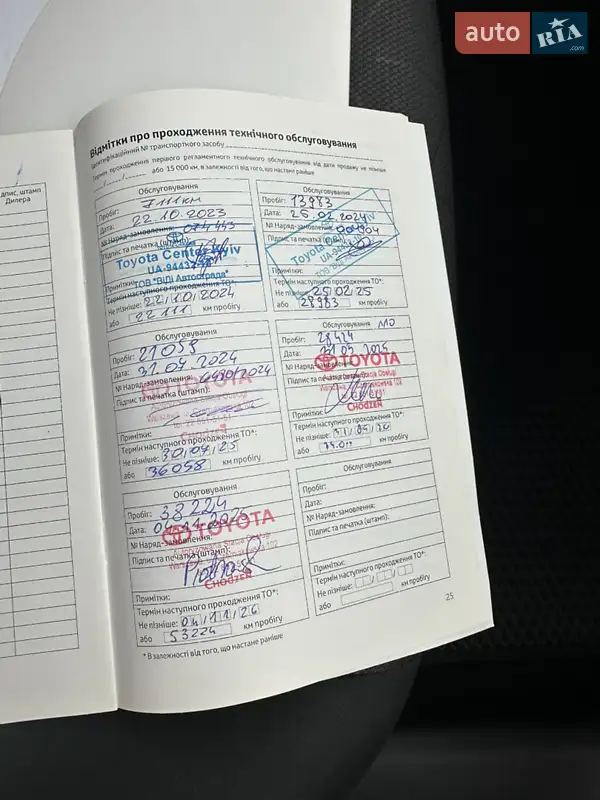 auto RIA .com
дпис, штамп
Дилера
Відмітки про проходження технічного обслуговування
Ідентифікаційний № транспортного засобу
Термін проходження першого регламентного технічного обслуговування від дати продажу не пізніше
або 15 000 км, в залежності від того, що настане раніше
Обслуговування
Пробіг: 7111км
Дата: 22.10.2023
№ Наряд-замовлення: 074443
Підпис та печатка (штамп):
Toyota Center Kyiv
UA-9443
ТОВ "ВіДі Автострада"
Примітки:
Термін наступного проходження ТО*:
Не пізніше: 22/10/2024
або 22 111 км пробігу
Обслуговування
Пробіг: 13983
Дата: 25.02.2024
№ Наряд-замовлення:
Підпис та печатка (штамп):
Toyota
UA-944
ТОВ "ВіДі
Примітки:
Термін наступного проходження ТО*:
Не пізніше: 25/02/25
або 28983 км пробігу
Обслуговування
Пробіг: 21058
Дата: 31.07.2024
№ Наряд-замовлення:
TOYOTA
Підпис та печатка (штамп):
Примітки:
Термін наступного проходження ТО*:
Не пізніше:
або 36058 км пробігу
Обслуговування
Пробіг: 28424
Дата:
№ Наряд-замовлення:
TOYOTA
Підпис та печатка
CHODZEŃ
Примітки:
Термін наступного проходження ТО*:
Не пізніше:
або км пробігу
Обслуговування
Пробіг: 38224
Дата:
№ Наряд-замовлення:
TOYOTA
Підпис та печатка (штамп):
CHODZEŃ
Примітки:
Термін наступного проходження ТО*:
Не пізніше: 04/11/26
або 53224 км пробігу
Обслуговування
Пробіг:
Дата:
№ Наряд-замовлення:
Підпис та печатка (штамп):
Примітки:
Термін наступного проходження ТО*:
Не пізніше:
або км пробігу
* В залежності від того, що настане раніше
25